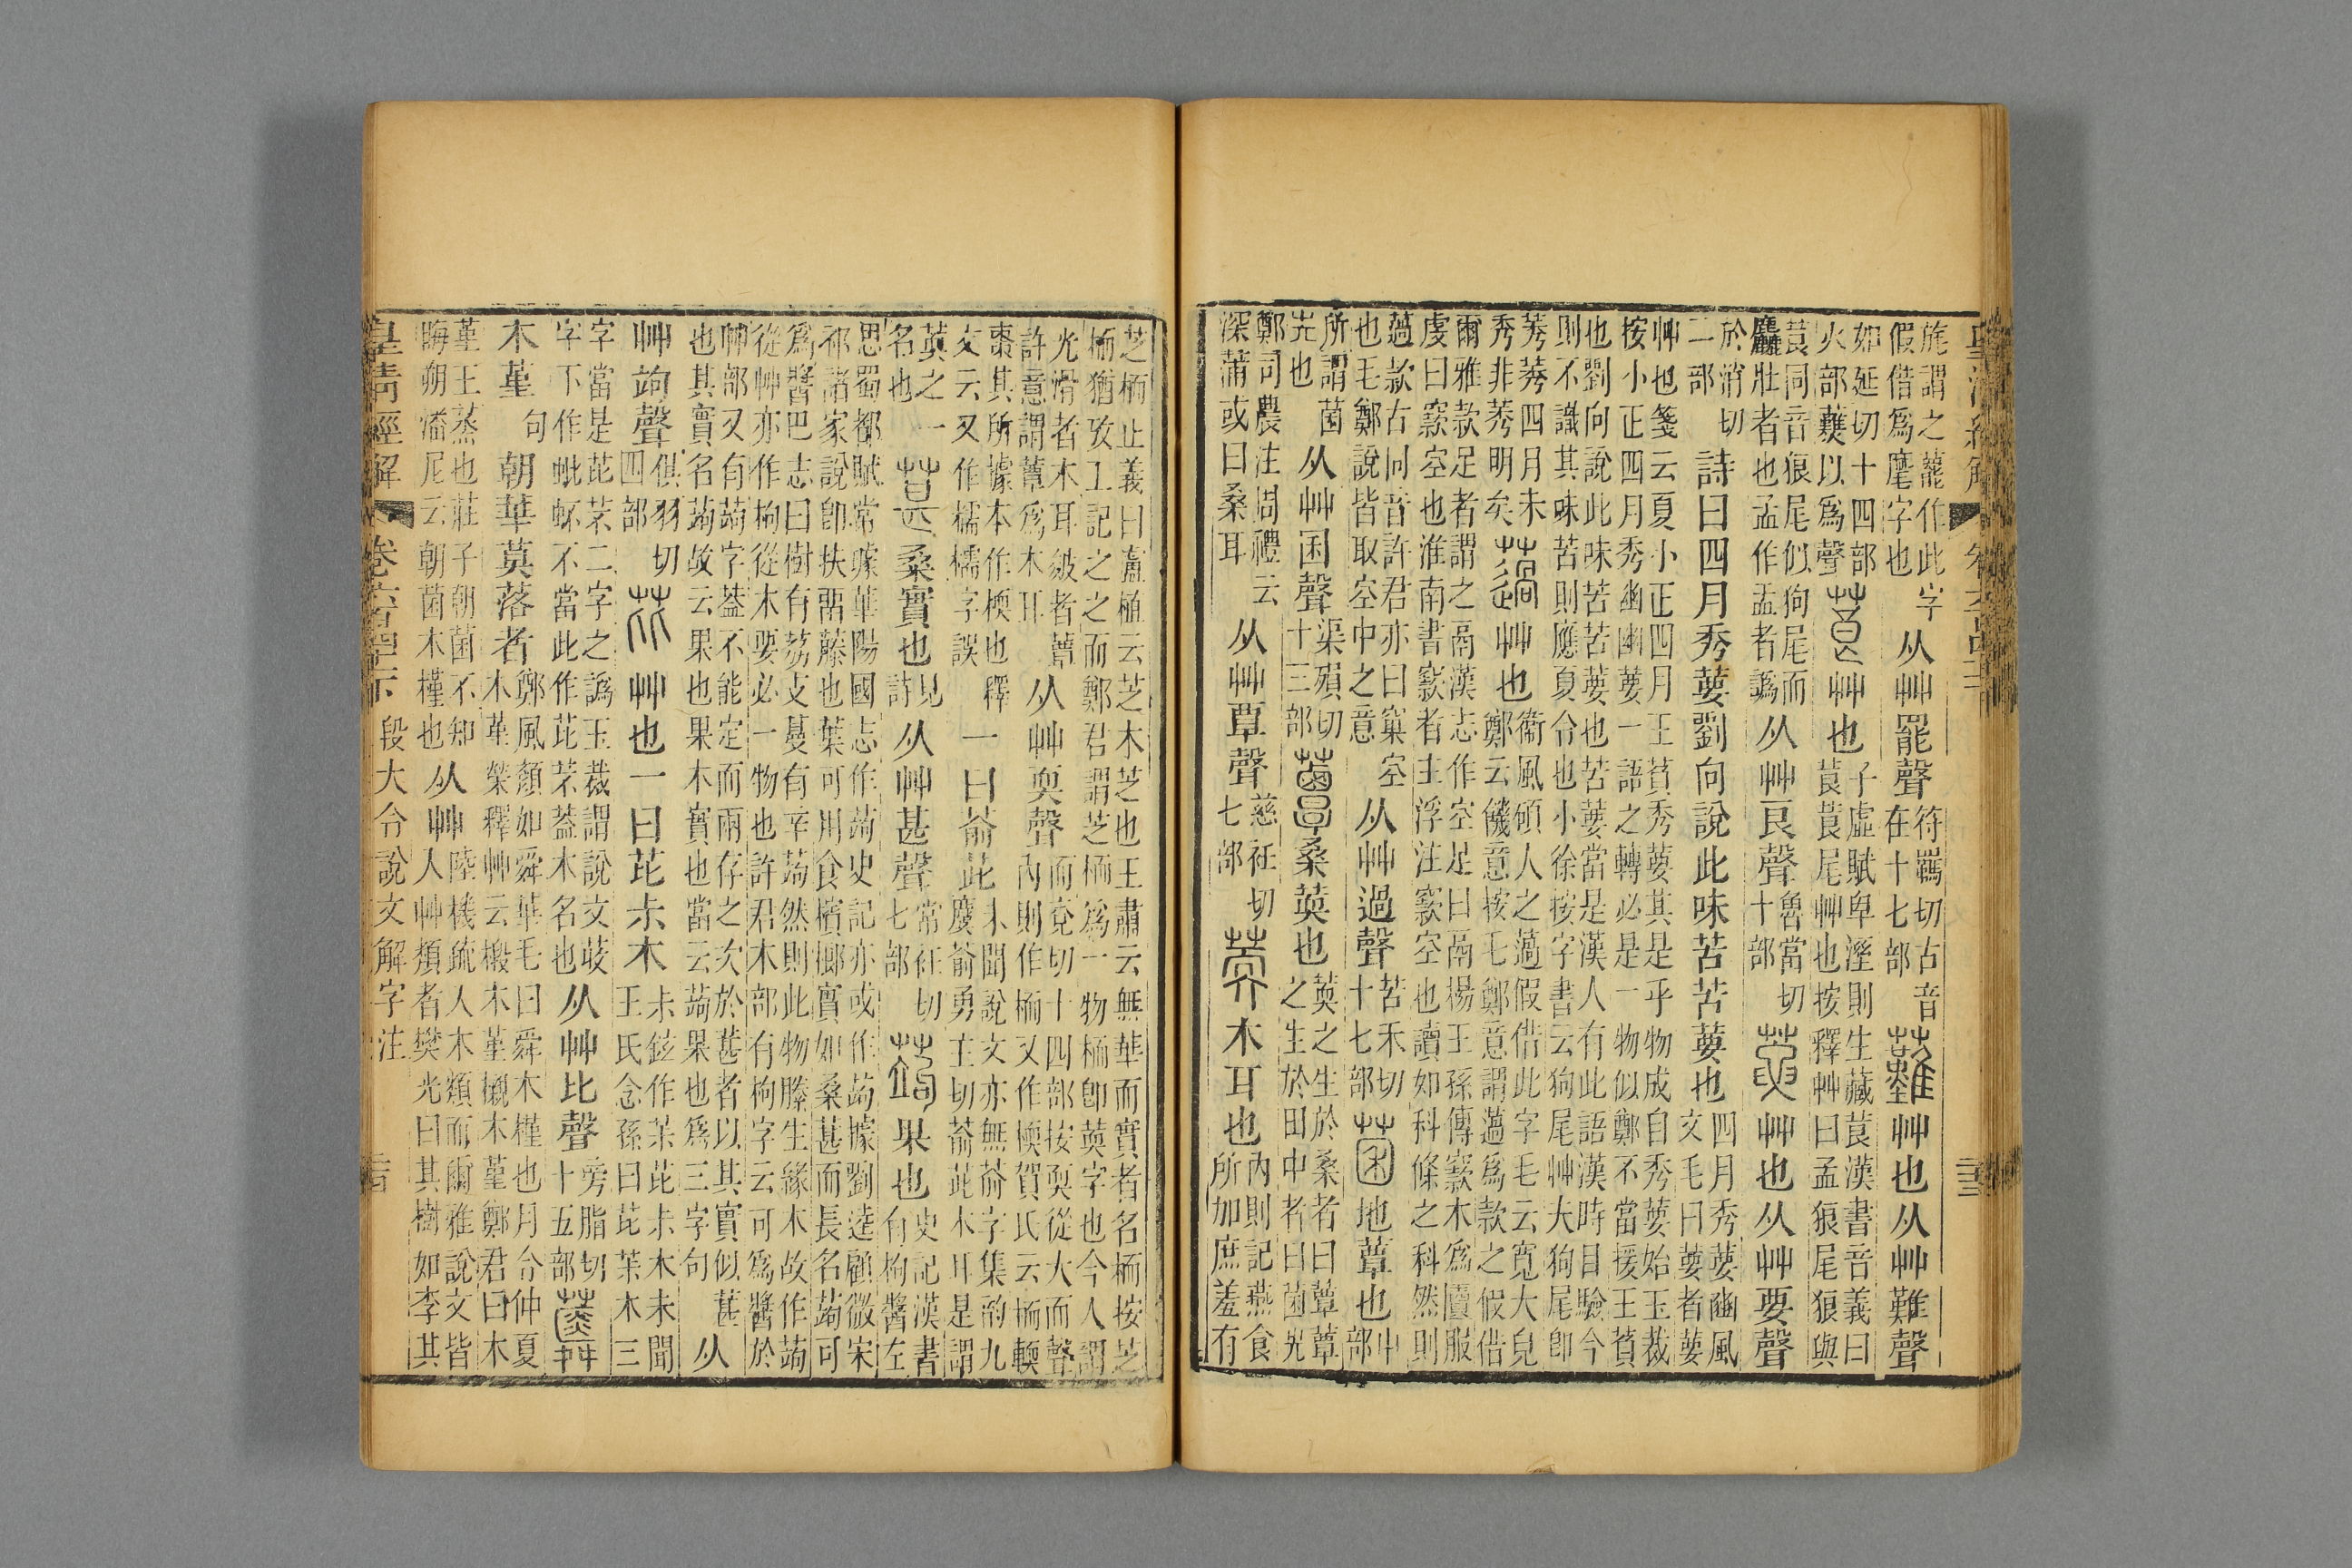 旄謂之藣作此字假借爲麾字也从艸罷聲符羈切古音在十七部𧅆艸也从艸難聲
如延切十四部火部䕼以爲聲莨艸也子虛賦卑溼則生藏莨漢書音義曰莨莨尾艸也按釋艸曰孟狼尾狼與
莨同音狼尾似狗尾而麤壯者也孟作盂者譌从艸良聲魯當切十部葽艸也从艸要聲
於消切二部詩曰四月秀葽劉向說此味苦苦葽也四月秀葽豳風文毛曰葽者葽
艸也箋云夏小正四月王萯秀葽其是乎物成自秀葽始玉裁按小正四月秀幽幽葽一語之轉必是一物似鄭不當援王萯
也劉向說此味苦苦葽也苦葽當是漢人有此語漢時目驗今則不識其味苦則應夏令也小徐按字書云狗尾艸大狗尾卽
莠莠四月未秀非莠明矣薖艸也衞風碩人之薖假借此字毛云寬大皃鄭云饑意按毛鄭意謂薖爲款之假借
爾雅款足者謂之鬲漢志作空足曰鬲楊王孫傳窾木爲匵服虔曰窾空也淮南書窾者主浮注窾空也讀如科條之科然則
薖款古同音許君亦曰窠空也毛鄭說皆取空中之意从艸過聲苦禾切十七部菌地蕈也屮部
所謂菌𡴆也从艸囷聲渠殞切十三部蕈桑䓴也䓴之生於桑者曰蕈蕈之生於田中者曰菌𡴆
鄭司農注周禮云深蒲或曰桑耳从艸覃聲慈衽切七部䓴木耳也內則記燕食所加庶羞有
芝栭正義曰盧植云芝木芝也王肅云無華而實者名栭按芝栭猶攷工記之之而鄭君謂芝栭爲一物栭卽䓴字也今人謂
光滑者木耳皴者蕈許意謂蕈爲木耳从艸耎聲而兗切十四部按耎從大而聲內則作栭又作檽賀氏云栭軟
棗其所據本作檽也釋文云又作檽檽字誤一曰萮茈未聞說文亦無萮字集韵九麌萮勇主切萮茈木耳是謂
䓴之一名也葚桑實也見詩从艸甚聲常衽切七部蒟果也史記漢書有枸醬左
思蜀都賦常璩華陽國志作蒟史記亦或作蒟據劉逵顧微宋祁諸家說卽扶䤈藤也葉可用食檳榔實如桑葚而長名蒟可
爲醬巴志曰樹有荔支蔓有辛蒟然則此物滕生緣木故作蒟從艸亦作枸從木要必一物也許君木部有枸字云可爲醬於
艸部又有蒟字葢不能定而兩存之次於葚者以其實似葚也其實名蒟故云果也果木實也當云蒟果也爲三字句从
艸竘聲俱羽切四部芘艸也一曰芘尗木尗鉉作茮芘尗木未聞王氏念孫曰芘茮木三
字當是芘芣二字之譌玉裁謂說文荍字下作蚍蚥不當此作芘芣葢木名也从艸比聲旁脂切十五部蕣
木堇句朝華莫落者鄭風顏如舜華毛曰舜木槿也月令仲夏木堇榮釋艸云椴木堇櫬木堇鄭君曰木
堇王蒸也莊子朝菌不知晦朔潘尼云朝菌木槿也从艸陸機疏入木類而爾雅說文皆入艸類者樊光曰其樹如李其
皇清經解 段大令說文解字注